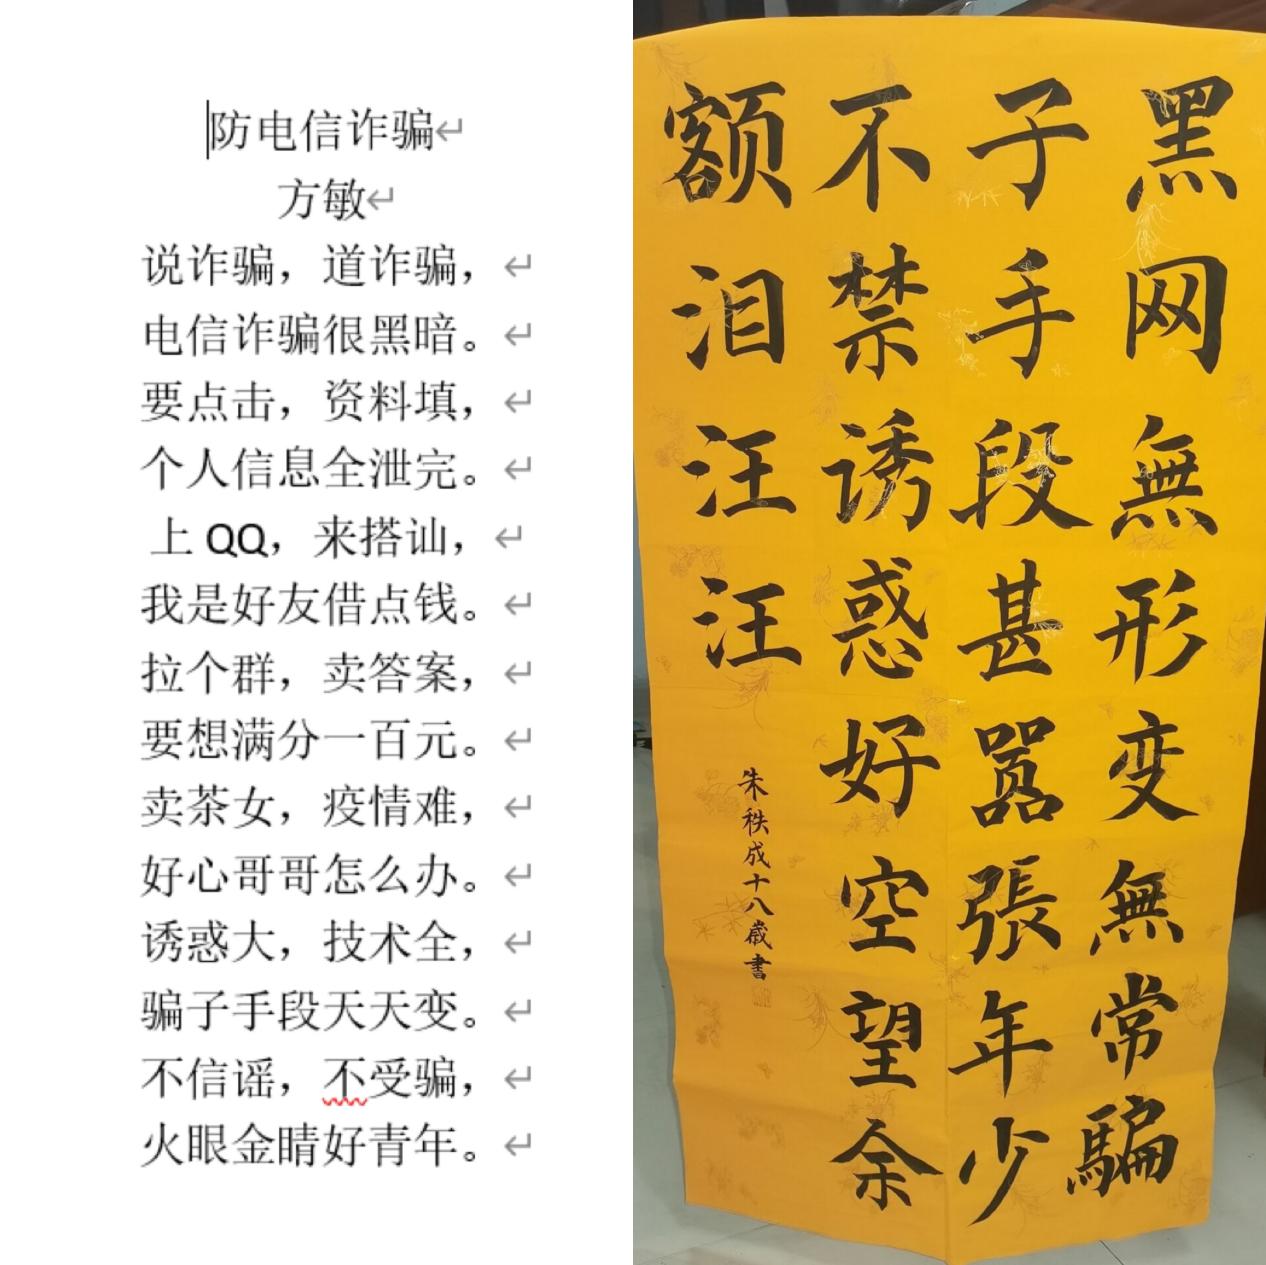 防电信诈骗
方敏
说诈骗，道诈骗，
电信诈骗很黑暗。
要点击，资料填，
个人信息全泄完。
上QQ，来搭讪，
我是好友借点钱。
拉个群，卖答案，
要想满分一百元。
卖茶女，疫情难，
好心哥哥怎么办。
诱惑大，技术全，
骗子手段天天变。
不信谣，不受骗，
火眼金睛好青年。
黑网無形变無常騙
子手段甚嚣張年少
不禁诱惑好空望余
额泪汪汪
朱秩成十八歲書